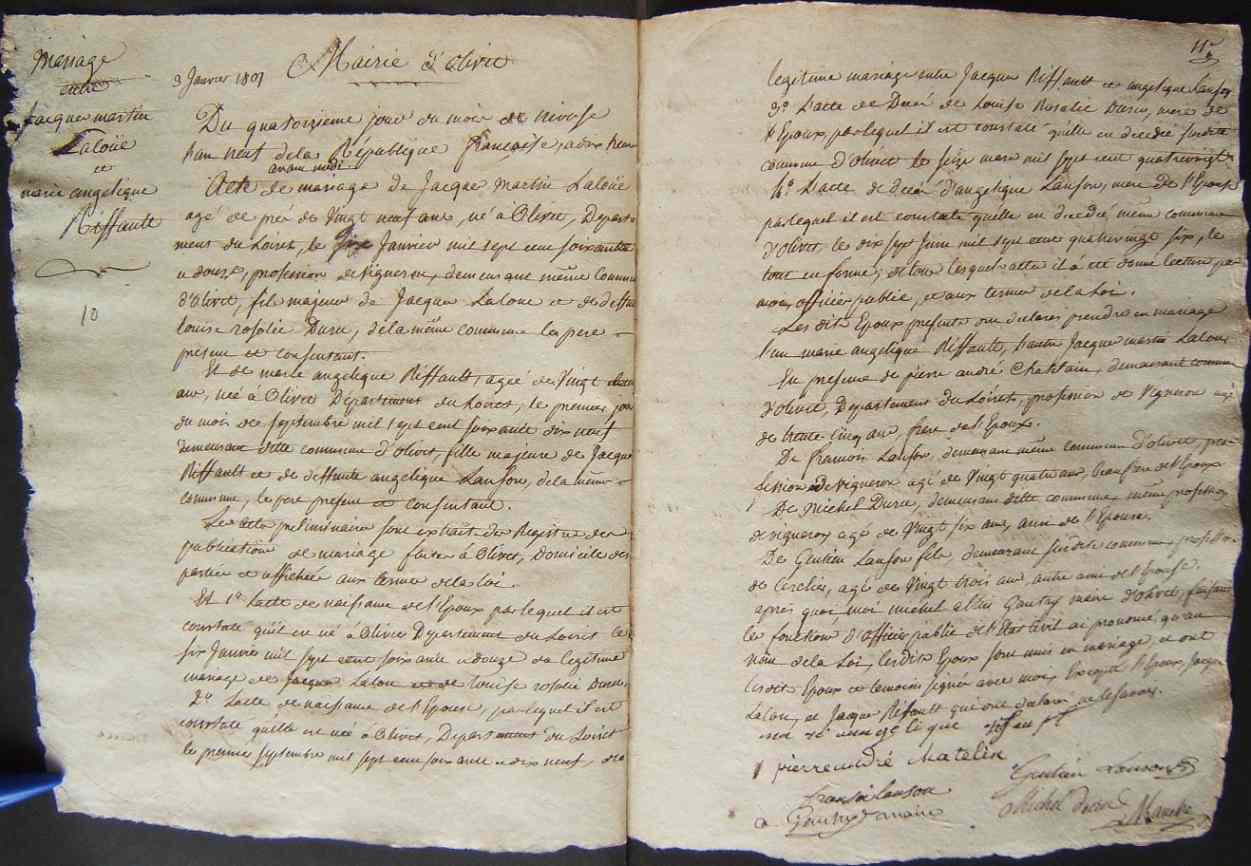 Mariage
entre
Jacques martin
Laloüe
et
marie angelique
Riffault
10
Mairie d'Olivet
3 Janvier 1801
Du quatorzieme jour du mois de nivose
l'an neuf de la République française, a dix heures
avant midi
Acte de mariage de Jacque Martin Laloüe
agé de pres de Vingt neuf ans, né à Olivet, Départe-
ment du Loiret, le six Janvier mil sept cent soixante
et douze, profession de vigneron, demeurant même Commune
d'Olivet, fils majeur de Jacques Laloue et de deffunte
louise rosalie Duru, de la même commune le pere
present et consentant.
Et de marie angelique Riffault, agée de Vingt
ans, née à Olivet Département du Loiret, le premier jour
du mois de septembre mil sept cent soixante dix neuf
demeurant ditte commune d'olivet, fille majeure de Jacques
Riffault et de deffunte angelique Lanson, de la même
commune, le pere present et consentant.
Les actes preliminaires sont extraits des Registres des
publications de mariage faites à Olivet, domicile des
parties et affichés aux termes de la loi.
Et 1o. L'acte de naissance de l'Epoux par lequel il est
constaté qu'il est né à Olivet Département du Loiret le
six Janvier mil sept cent soixante et douze du légitime
mariage de Jacques Laloue et de Louise rosalie Duru.
2o. L'acte de naissance de l'Epouse, par lequel il est
constaté qu'elle est née à Olivet, Département du Loiret
le premier septembre mil sept cent soixante et dix neuf, du
11
legitime mariage entre Jacques Riffault et angelique Lanson
3o. L'acte de Décès de Louise Rosalie Duru, mere de
l'Epoux, par lequel il est constaté qu'elle est decedée susditte
commune d'olivet le seize mars mil sept cent quatrevingt
4o. L'acte de decès d'angelique Lanson, mere de l'Epouse
par lequel il est constaté qu'elle est decedée même commune
d'olivet, le dix sept Juin mil sept cent quatrevingt six, le
tout en forme; de tous lesquels actes il a été donné lecture par
moi, officier public, et aux termes de la loi.
Les dits Epoux presents ont declaré prendre en mariage
l'un marie angelique Riffault, l'autre Jacques martin Laloue
En presence de pierre andré Chatelain, demeurant commune
d'olivet, Département du Loiret, profession de Vigneron agé
de trente cinq ans, frere de l'Epoux.
De francois Lanson, demeurant même commune d'olivet, pro-
fession de vigneron agé de Vingt quatre ans, beau frere de l'Epoux
De Michel Duru, demeurant ditte commune, même profession
de vigneron agé de Vingt six ans, ami de l'Epouse.
De Gentien Lanson fils, demeurant susditte commune, profession
de Cerclier, agé de Vingt trois ans, autre ami de l'Epouse.
après quoi, moi michel Gautry maire d'olivet, faisant
les fonctions d'officier public de l'Etat Civil ai prononcé, qu'au
nom de la Loi, lesdits Epoux sont unis en mariage, et ont
lesdits Epoux et temoins signé avec moi, Excepté l'Epoux, Jacque
Laloue, et Jacque Riffault qui ont declaré ne le savoir.
pierre andré Chatelin
Gentien Lanson
francois lanson
Michel duru
Gautry maire